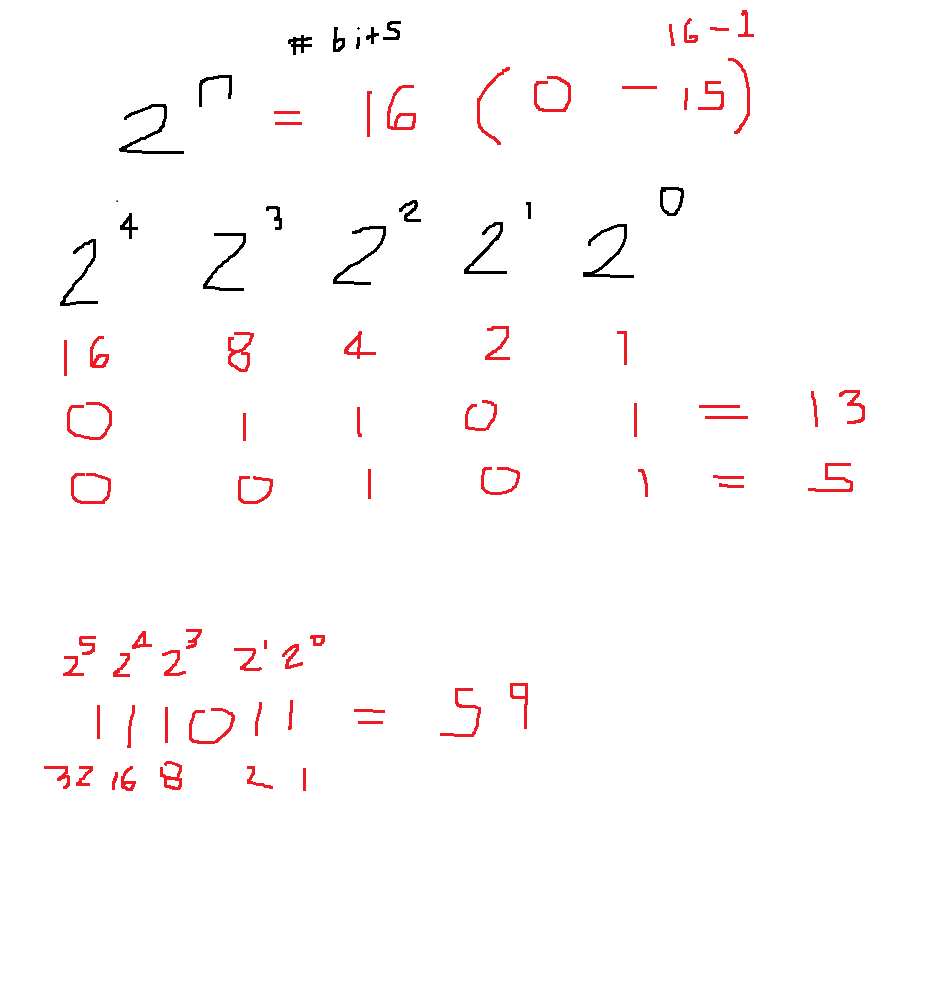 # bits 16-1
2^n = 16 (0 - 15)
2^4 2^3 2^2 2^1 2^0
16 8 4 2 1
0 1 1 0 1 = 13
0 0 1 0 1 = 5
2^5 2^4 2^3 2^1 2^0
111011 = 59
32 16 8 2 1